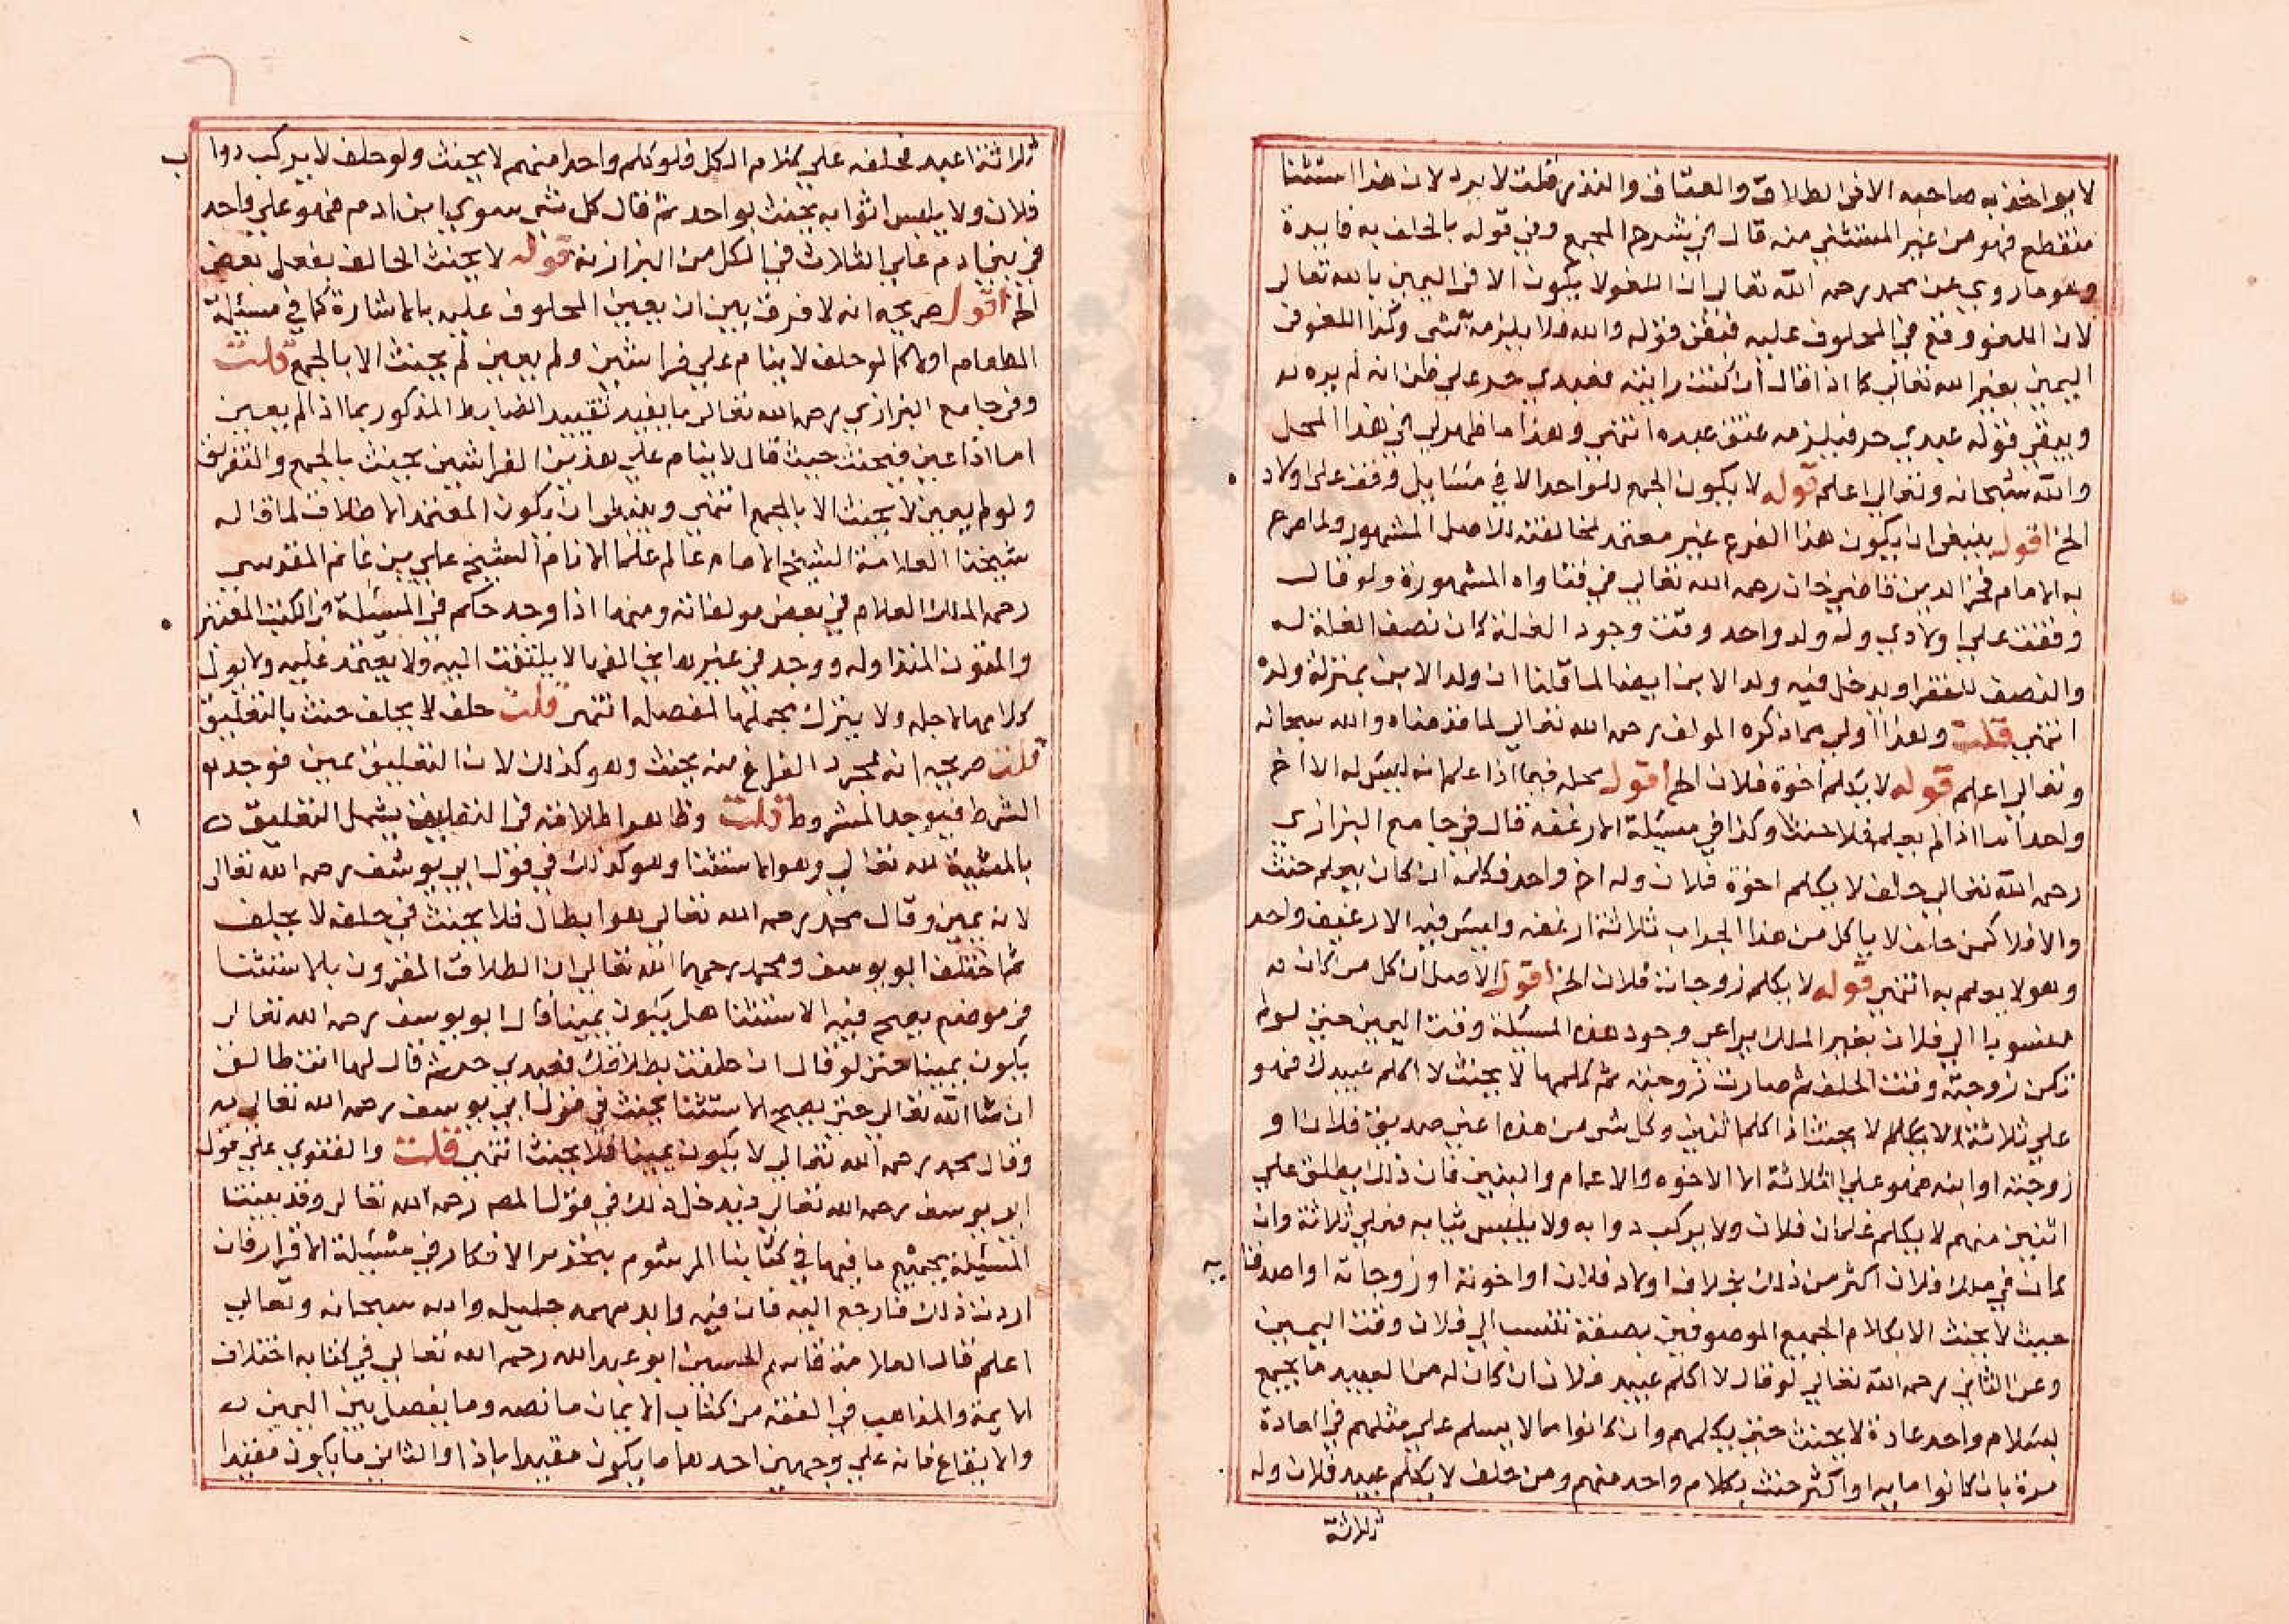 لا يواخذ به صاحبه الا في الطلاق والعتاق والنذر قلت لا يرد لان هذا استثنا
منقطع فهو من غير المستثني منه قال في شرح المجمع وفي قوله بالحلف به فايدة
وهو ما روي عن محمد رحمه الله تعالي ان اللغو لا يكون الا في اليمين بالله تعالي
لان اللغو وقع في المحلوف عليه فبقي قوله والله فلا يلزمه شي وكذا اللغو في
اليمين بغير الله تعالي كما اذا قال ان كنت رايته فعبدي حر علي ظن انه لم يره
ويبقي قوله عبدي حر فيلزمه عتق عبده انتهي وهذا ما ظهر لي في هذا المحل
والله سبحانه وتعالي اعلم قوله لا يكون الجمع للواحد الا في مسايل وقف علي اولاد
الخ اقول ينبغي ان يكون هذا الفرع غير معتمد لمخالفته الاصل المشهور ولما صرح
به الامام فخر الدين قاضي خان رحمه الله تعالي في فتاواه المشهورة ولو قال
وقفت علي اولادي وله ولد واحد وقت وجود الغلة كان نصف الغلة له
والنصف للفقرا ويدخل فيه ولد الابن ايضا لما قلنا ان ولد الابن بمنزلة ولده
انتهي قلت وهذا اولي مما ذكره المولف رحمه الله تعالي لما قدمناه والله سبحانه
وتعالي اعلم قوله لا يكلم اخوة فلان الخ اقول محله فيما اذا علم انه ليس له الا اخ
واحد اما اذا لم يعلم فلا حنث وكذا في مسئلة الارغفه قال في جامع البزازي
رحمه الله تعالي حلف لا يكلم اخوة فلان وله اخ واحد فكلمه ان كان يعلم حنث
والا فلا كمن حلف لا ياكل من هذا الجراب ثلاثة ارغفه وليس فيه الا رغيف واحد
وهو لا يعلم به انتهي قوله لا يكلم زوجات فلان الخ اقول الاصل ان كل من كان
منسوبا الي فلان بغير الملك يراعي وجود هذه المسئلة وقت اليمين حتي لو لم
تكن زوجته وقت الحلف ثم صارت زوجته ثم كلمها لا يحنث لا اكلم عبيدك فهو
علي ثلاثة لا يكلم لا يحنث اذا كلم اثنين وكل شي من هذه اعني صديق فلان او
زوجته او ابنه فهو علي الثلاثة الا الاخوه والاعمام والبنين فان ذلك يطلق علي
اثنين منهم لا يكلم غلمان فلان ولا يركب دوابه ولا يلبس ثيابه فعلي ثلاثة وان
كان في ملك فلان اكثر من ذلك بخلاف اولاد فلان او اخوته او زوجاته او اصدقا
يه
حيث لا يحنث الا بكلام الجميع الموصوفين بصفة تنسب الي فلان وقت اليمين
وعن الثاني رحمه الله تعالي لو قال لا اكلم عبيد فلان ان كان له من العبيد ما يجمع
بسلام واحد عادة لا يحنث حتي يكلمهم وان كانوا مما لا يسلم علي مثلهم في العادة
مرة بان كانوا مايه او اكثر حنث بكلام واحد منهم ومن حلف لا يكلم عبيد فلان وله
ثلاثة
ثلاثة اعبد فحلفه علي كلام الكل فلو كلم واحدا منهم لا يحنث ولو حلف لا يركب دوا
ب
فلان ولا يلبس اثوابه يحنث بواحد ثم قال كل شي سوي ابن ادم فهو علي واحد
في بني ادم علي الثلاث في الكل من البزازيه قوله لا يحنث الحالف بفعل بعض
الخ اقول صريحه انه لا فرق بين ان يعين المحلوف عليه بالاشارة كما في مسئلة
الطعام او لا كما لو حلف لا ينام علي فراشين ولم يعين لم يحنث الا بالجمع قلت
وفي جامع البزازي رحمه الله تعالي ما يفيد تقييد الضابط المذكور بما اذا لم يعين
اما اذا عين فيحنث حيث قال لا ينام علي هذين الفراشين يحنث بالجمع والتفريق
ولو لم يعين لا يحنث الا بالجمع انتهي وينبغي ان يكون المعتمد الاطلاق لما قاله
شيخنا العلامة الشيخ الامام عالم علما الانام الشيخ علي بن غانم المقدسي
رحمه الملك العلام في بعض مولفاته ومنها اذا وجد حكم في المسئلة في الكتب المعتبر
ه
والمتون المتداوله ووجد في غيرها يخالفها لا يلتفت اليه ولا يعتمد عليه ولا يؤل
كلامها لاجله ولا ينزل مجملها لمفصله انتهي قلت حلف لا يحلف حنث بالتعليق
قلت صريحه انه لمجرد الفراغ منه يحنث وهو كذلك لان التعليق يمين فوجد
الشرط فيوجد المشروط قلت وظاهر اطلاقه في التعليق يشمل التعليق
بالمشية لله تعالي وهو الاستثنا وهو كذلك في قول ابي يوسف رحمه الله تعالي
لانه يمين وقال محمد رحمه الله تعالي هو ابطال فلا يحنث في حلفه لا يحلف
ثم اختلف ابو يوسف ومحمد رحمهما الله تعالي ان الطلاق المقرون بالاستثنا
في موضع يصح فيه الاستثنا هل يكون يمينا قال ابو يوسف رحمه الله تعالي
يكون يمينا حتي لو قال ان حلفت بطلاقك فعبدي حر ثم قال لها انت طالق
ان شا الله تعالي حتي يصح الاستثنا يحنث في قول ابي يوسف رحمه الله تعالي
وقال محمد رحمه الله تعالي لا يكون يمينا فلا يحنث انتهي قلت والفتوي علي قول
ابي يوسف رحمه الله تعالي فيدخل ذلك في قول المص رحمه الله تعالي وقد بينتا
المسئلة بجميع ما فيها في كتابنا المرسوم بتحذير الافكار في مسئلة الاقرار فان
اردت ذلك فارجع اليه فان فيه فوايد مهمه جليله والله سبحانه وتعالي
اعلم قال العلامة قاسم الحسين ابو عبد الله رحمه الله تعالي في كتابه اختلاف
الايمة والمذاهب في الفقه من كتاب الايمان ما نصه وما يفصل بين اليمين
والايقاع فانه علي وجهين احدهما ما يكون مقيدا باذا والثاني ما يكون مقيدا